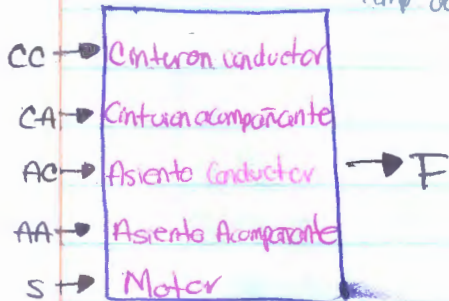 CC Cinturon conductor
CA Cinturon acompañante
AC Asiento Conductor F
AA Asiento Acompañante
S Motor